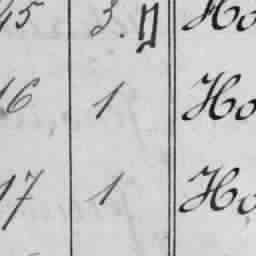 45 3. Ho
16 1 Ho
17 1 Ho